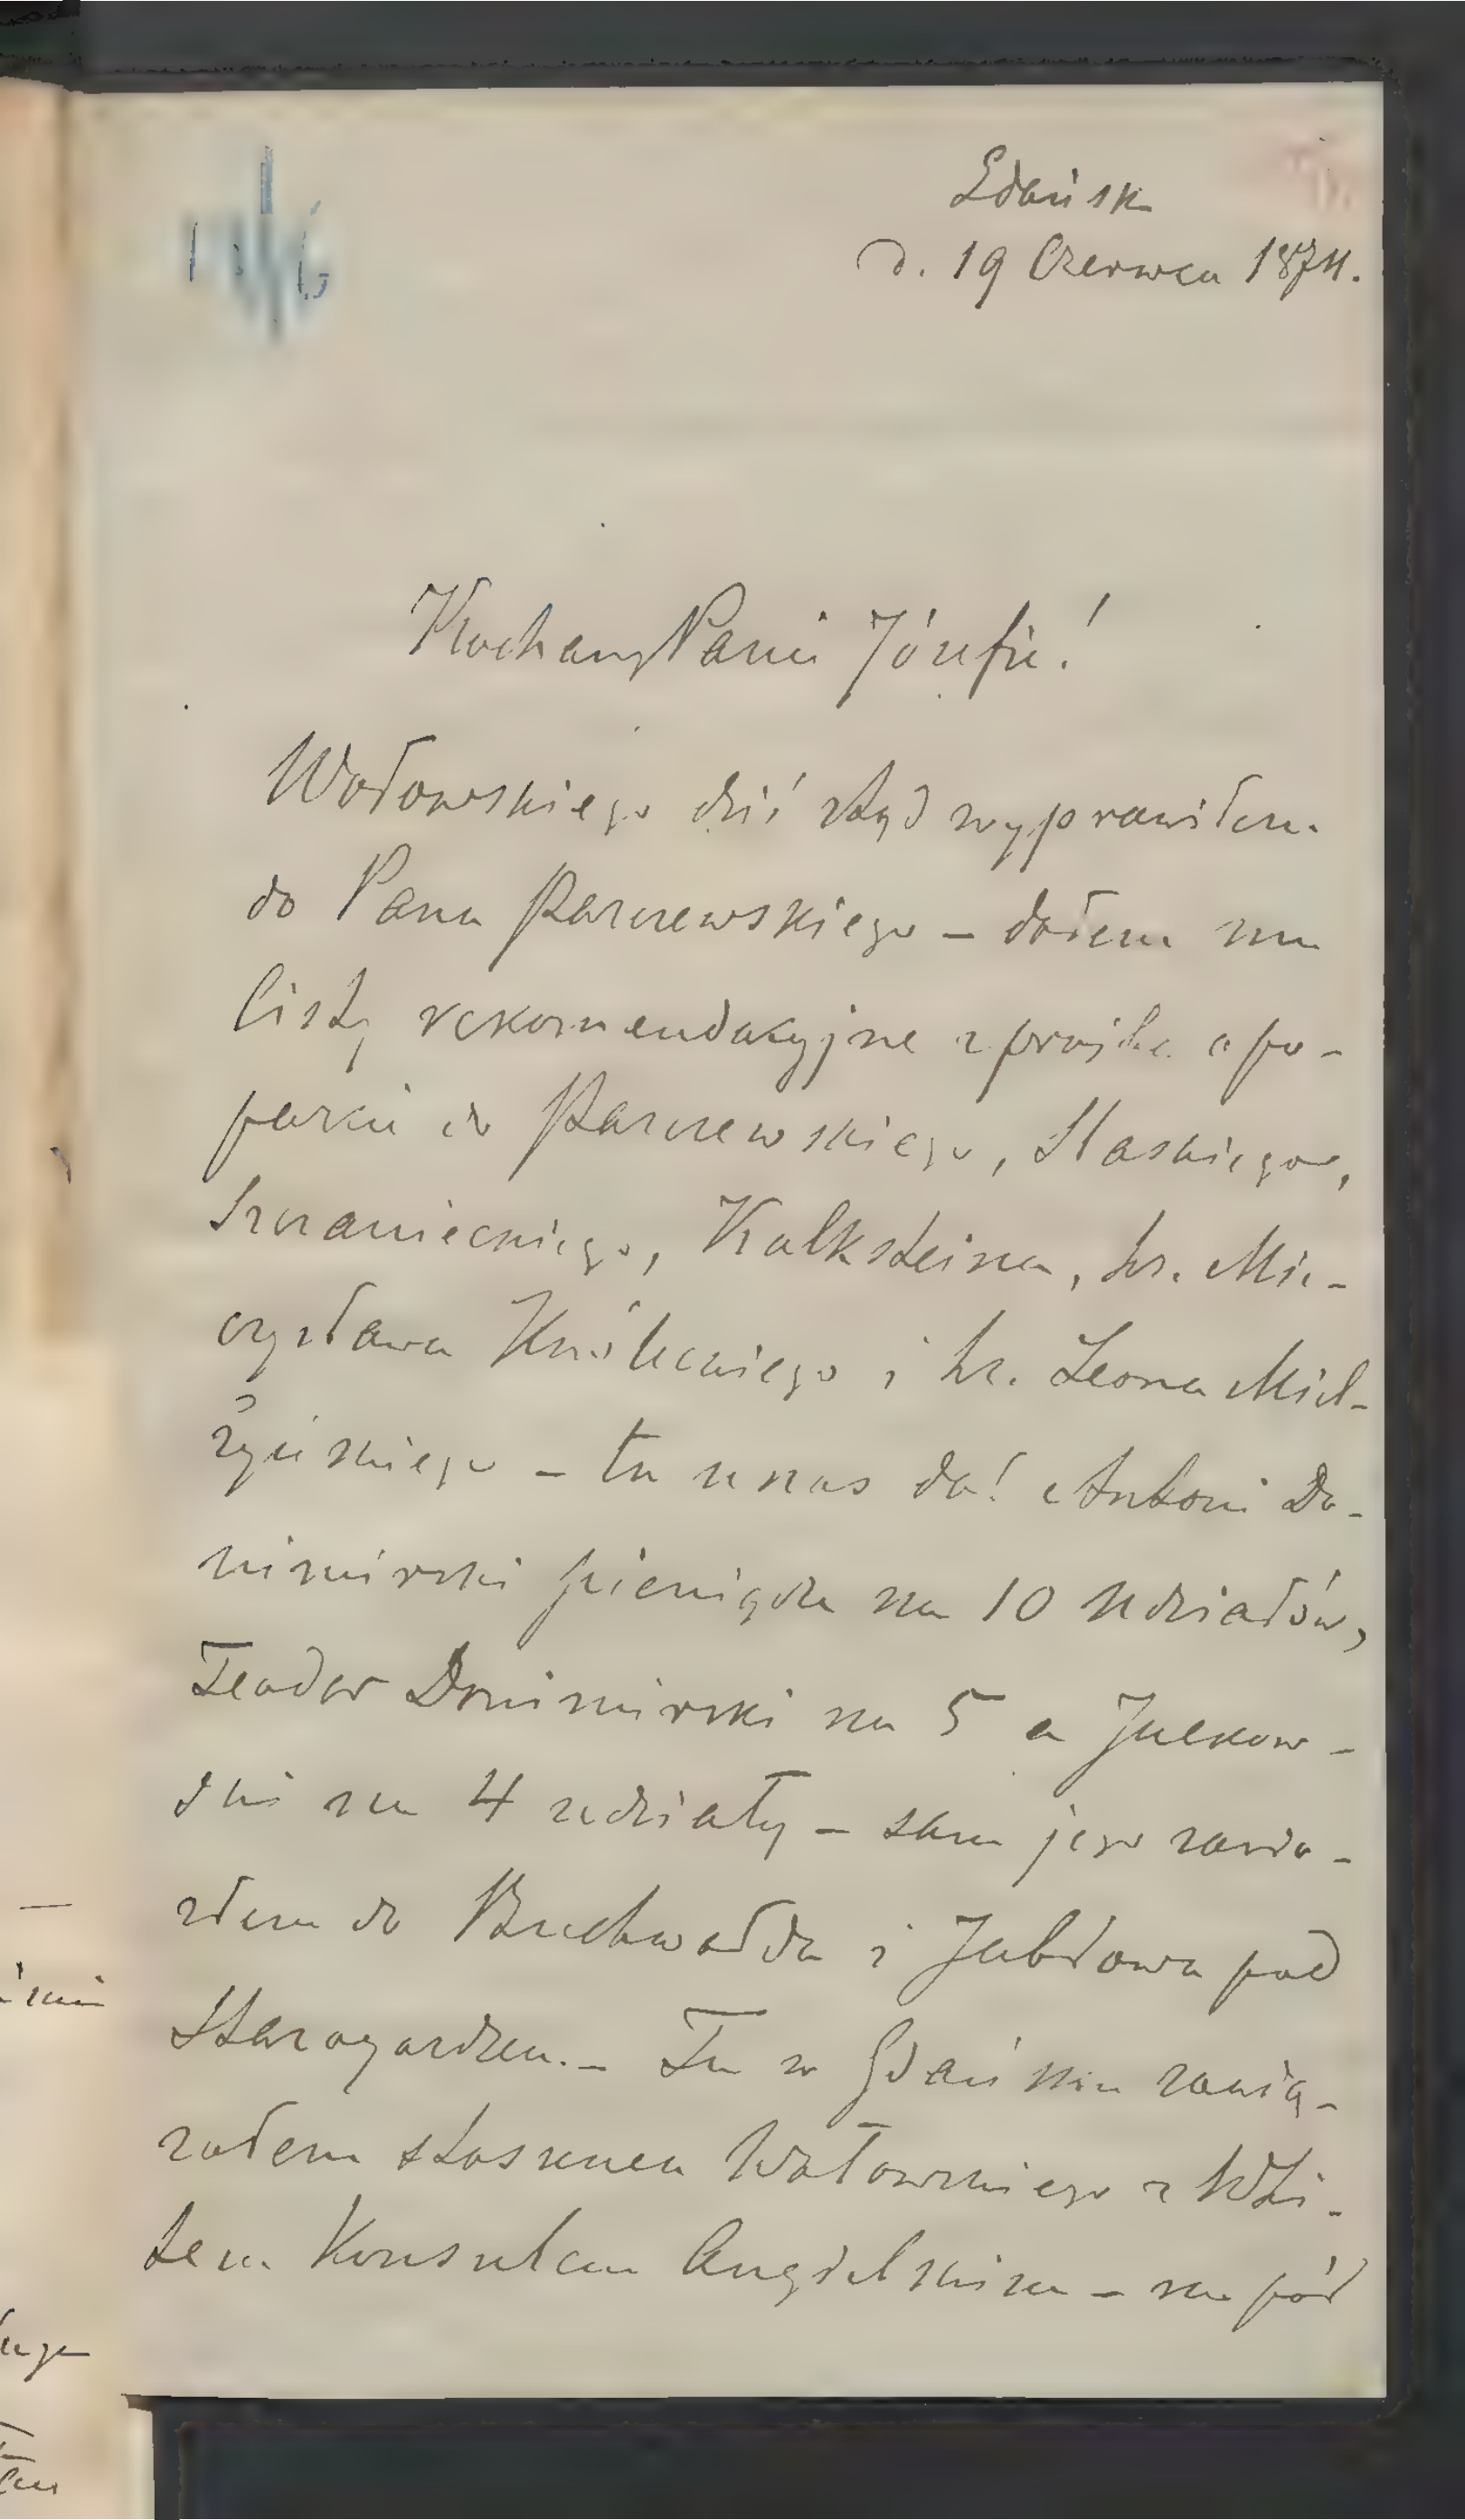 Gdańsk
d. 19 Czerwca 1874.
Kochany Panie Józefie!
Wołowskiego dziś ztąd wyprawiłem
do Pana Parczewskiego – dałem mu
listy rekomendacyjne z prośbą o po-
parcie do Parczewskiego, Slaskiego,
Sczanieckiego, Kalksteina, hr. Mie-
czysława Kwileckiego i hr. Leona Miel-
żyńskiego – tu u nas dał Antoni Do-
nimirski pieniądze na 10 udziałów,
Teodor Donimirski na 5 a Julkow-
ski na 4 udziały – sam jego zawio-
złem do Buchwałda i Jabłowa pod
Starogardem. – Tu w Gdańsku zawią-
załem stosunek Wołowskiego z
tem Konsulem Angielskim – na pół